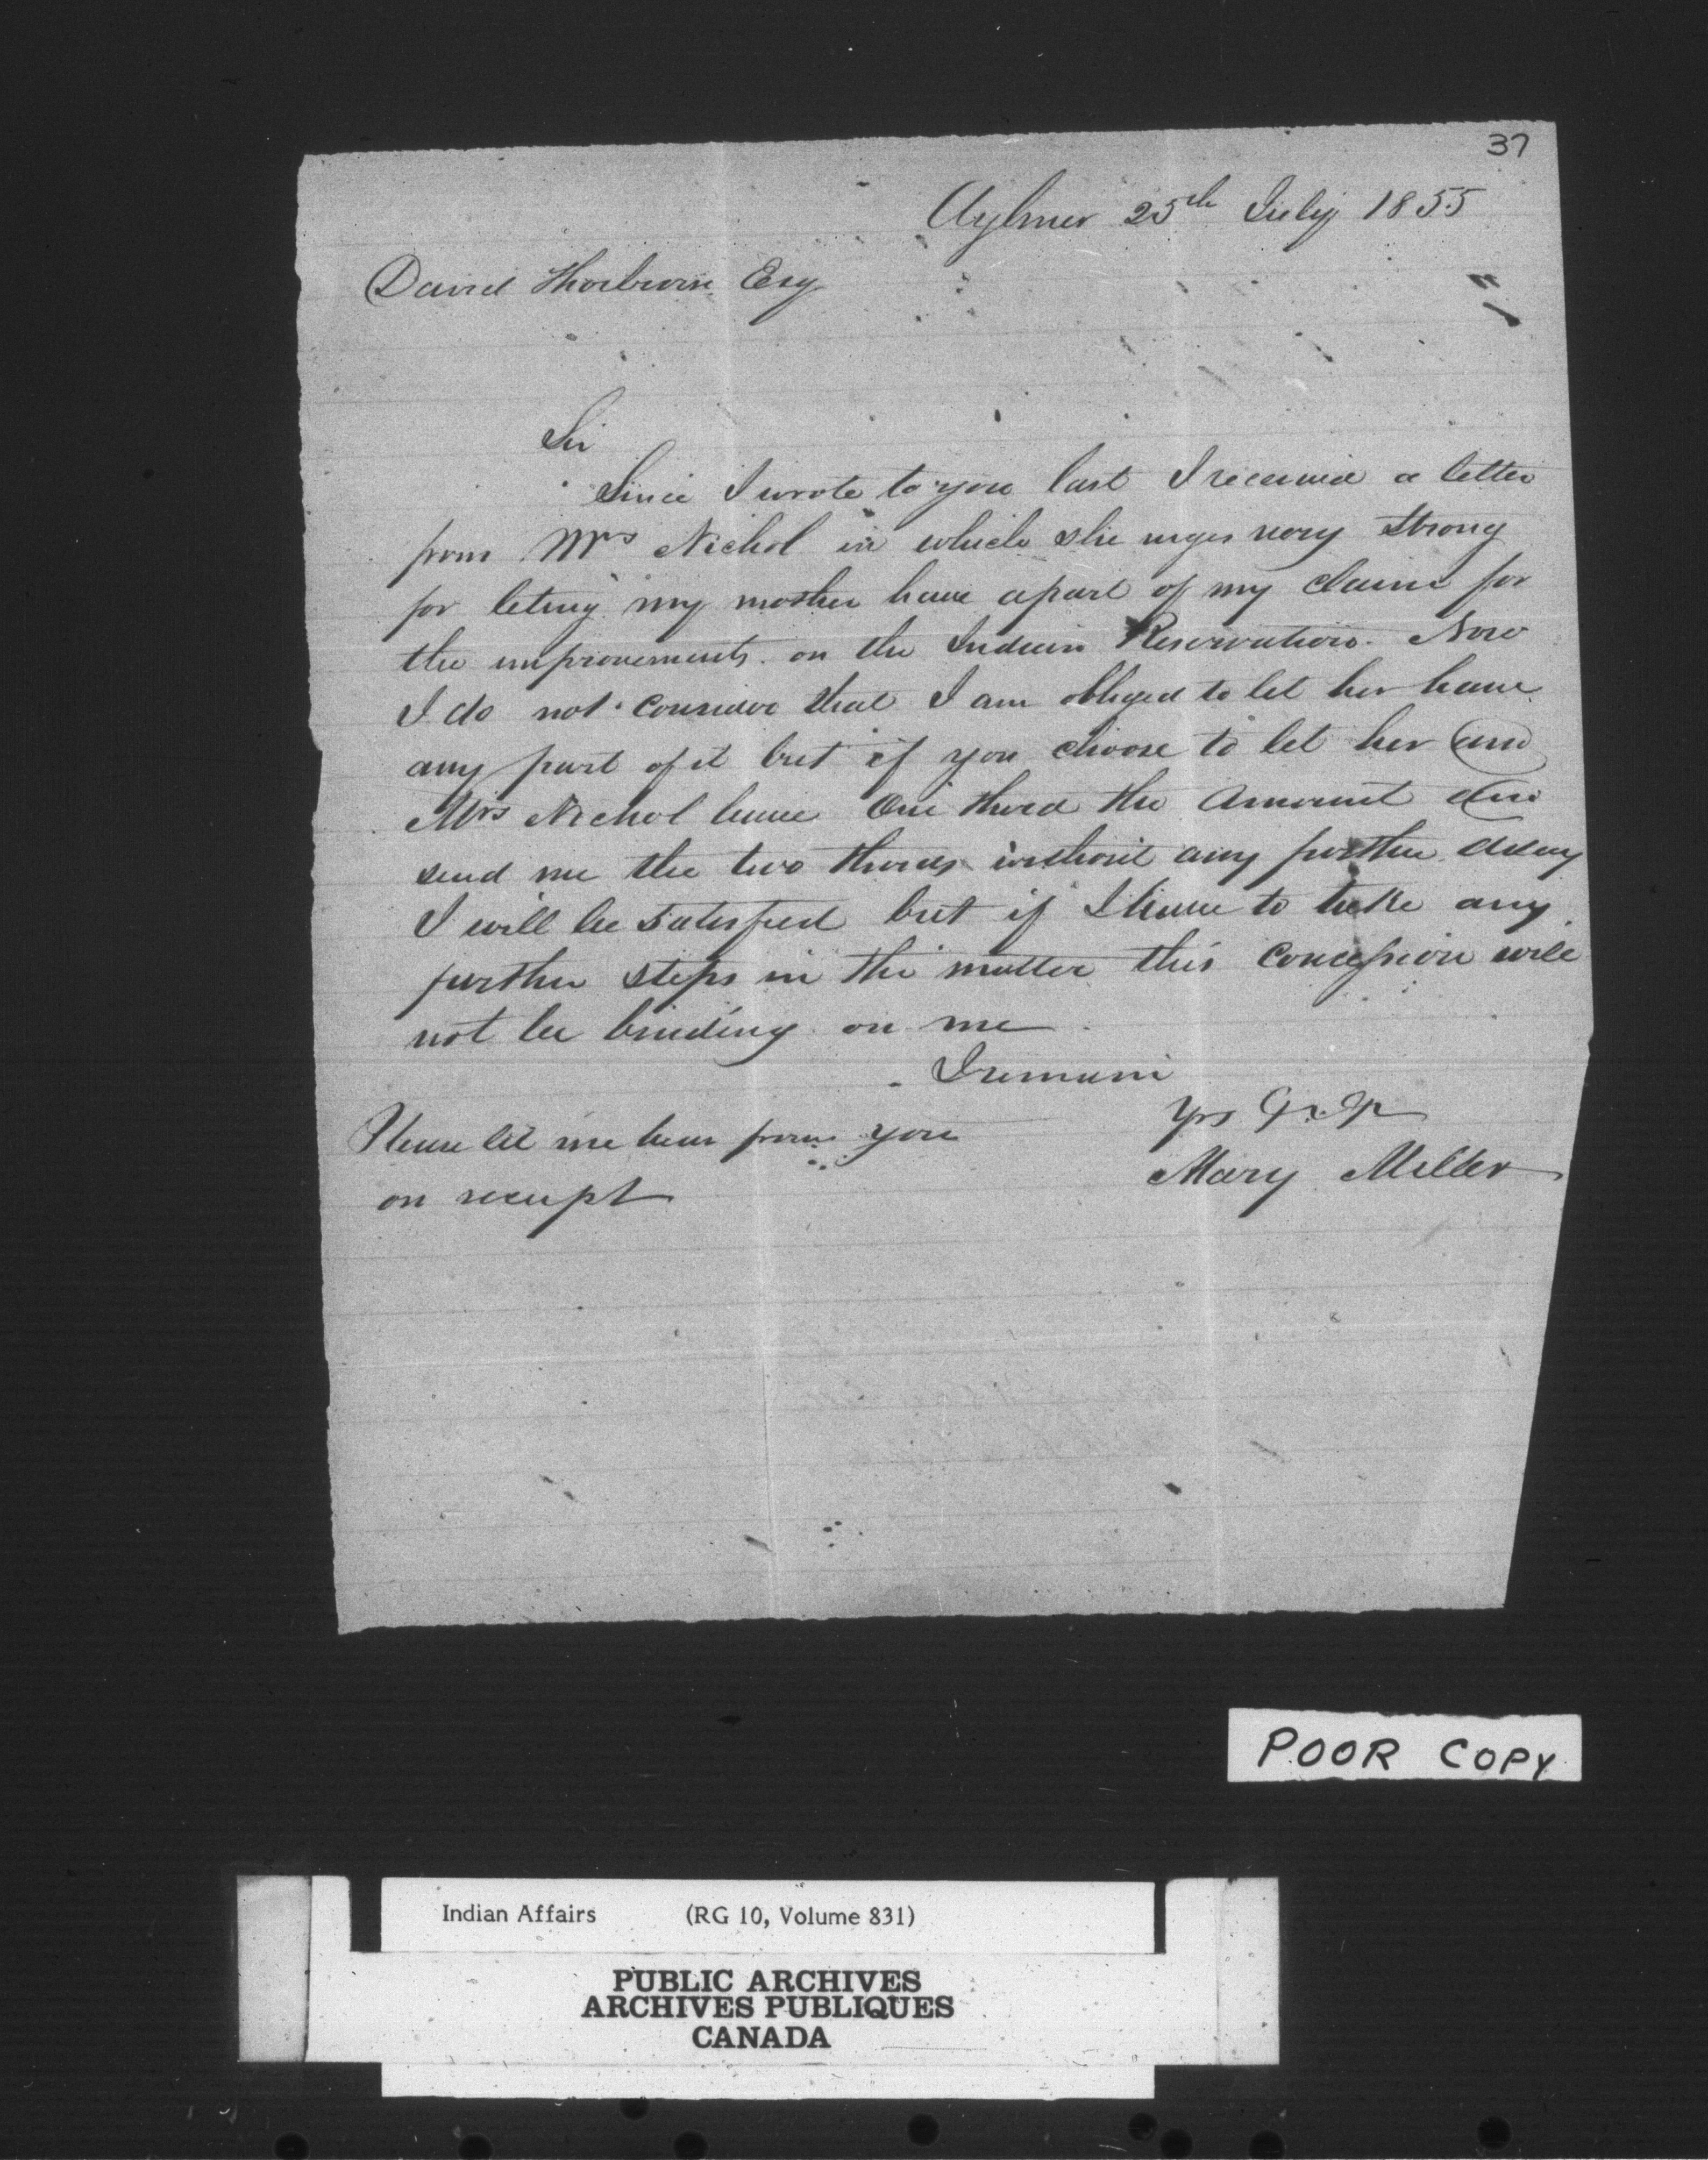 37
Aylmer 25th July 1855
David Thorburn Esq
Sir
Since I wrote to you last I received a letter
from Mrs Nichol in which she urges very strong
for leting my mother have apart of my claim for
the improvements on the Indian Reservation. Now
I do not consider that I am obliged to let her have
any part of it but if you choose to let her and
Mrs Nichol have One third the Amount and
send me the two thirds without any further delay
I will be satisfied but if I have to take any
further steps in the matter this concession will
not be binding on me
I remain
Yrs
Please let me hear from you
Mary Miller
on receipt
POOR COPY
Indian Affairs (RG 10, Volume 831)
PUBLIC ARCHIVES
ARCHIVES PUBLIQUES
CANADA